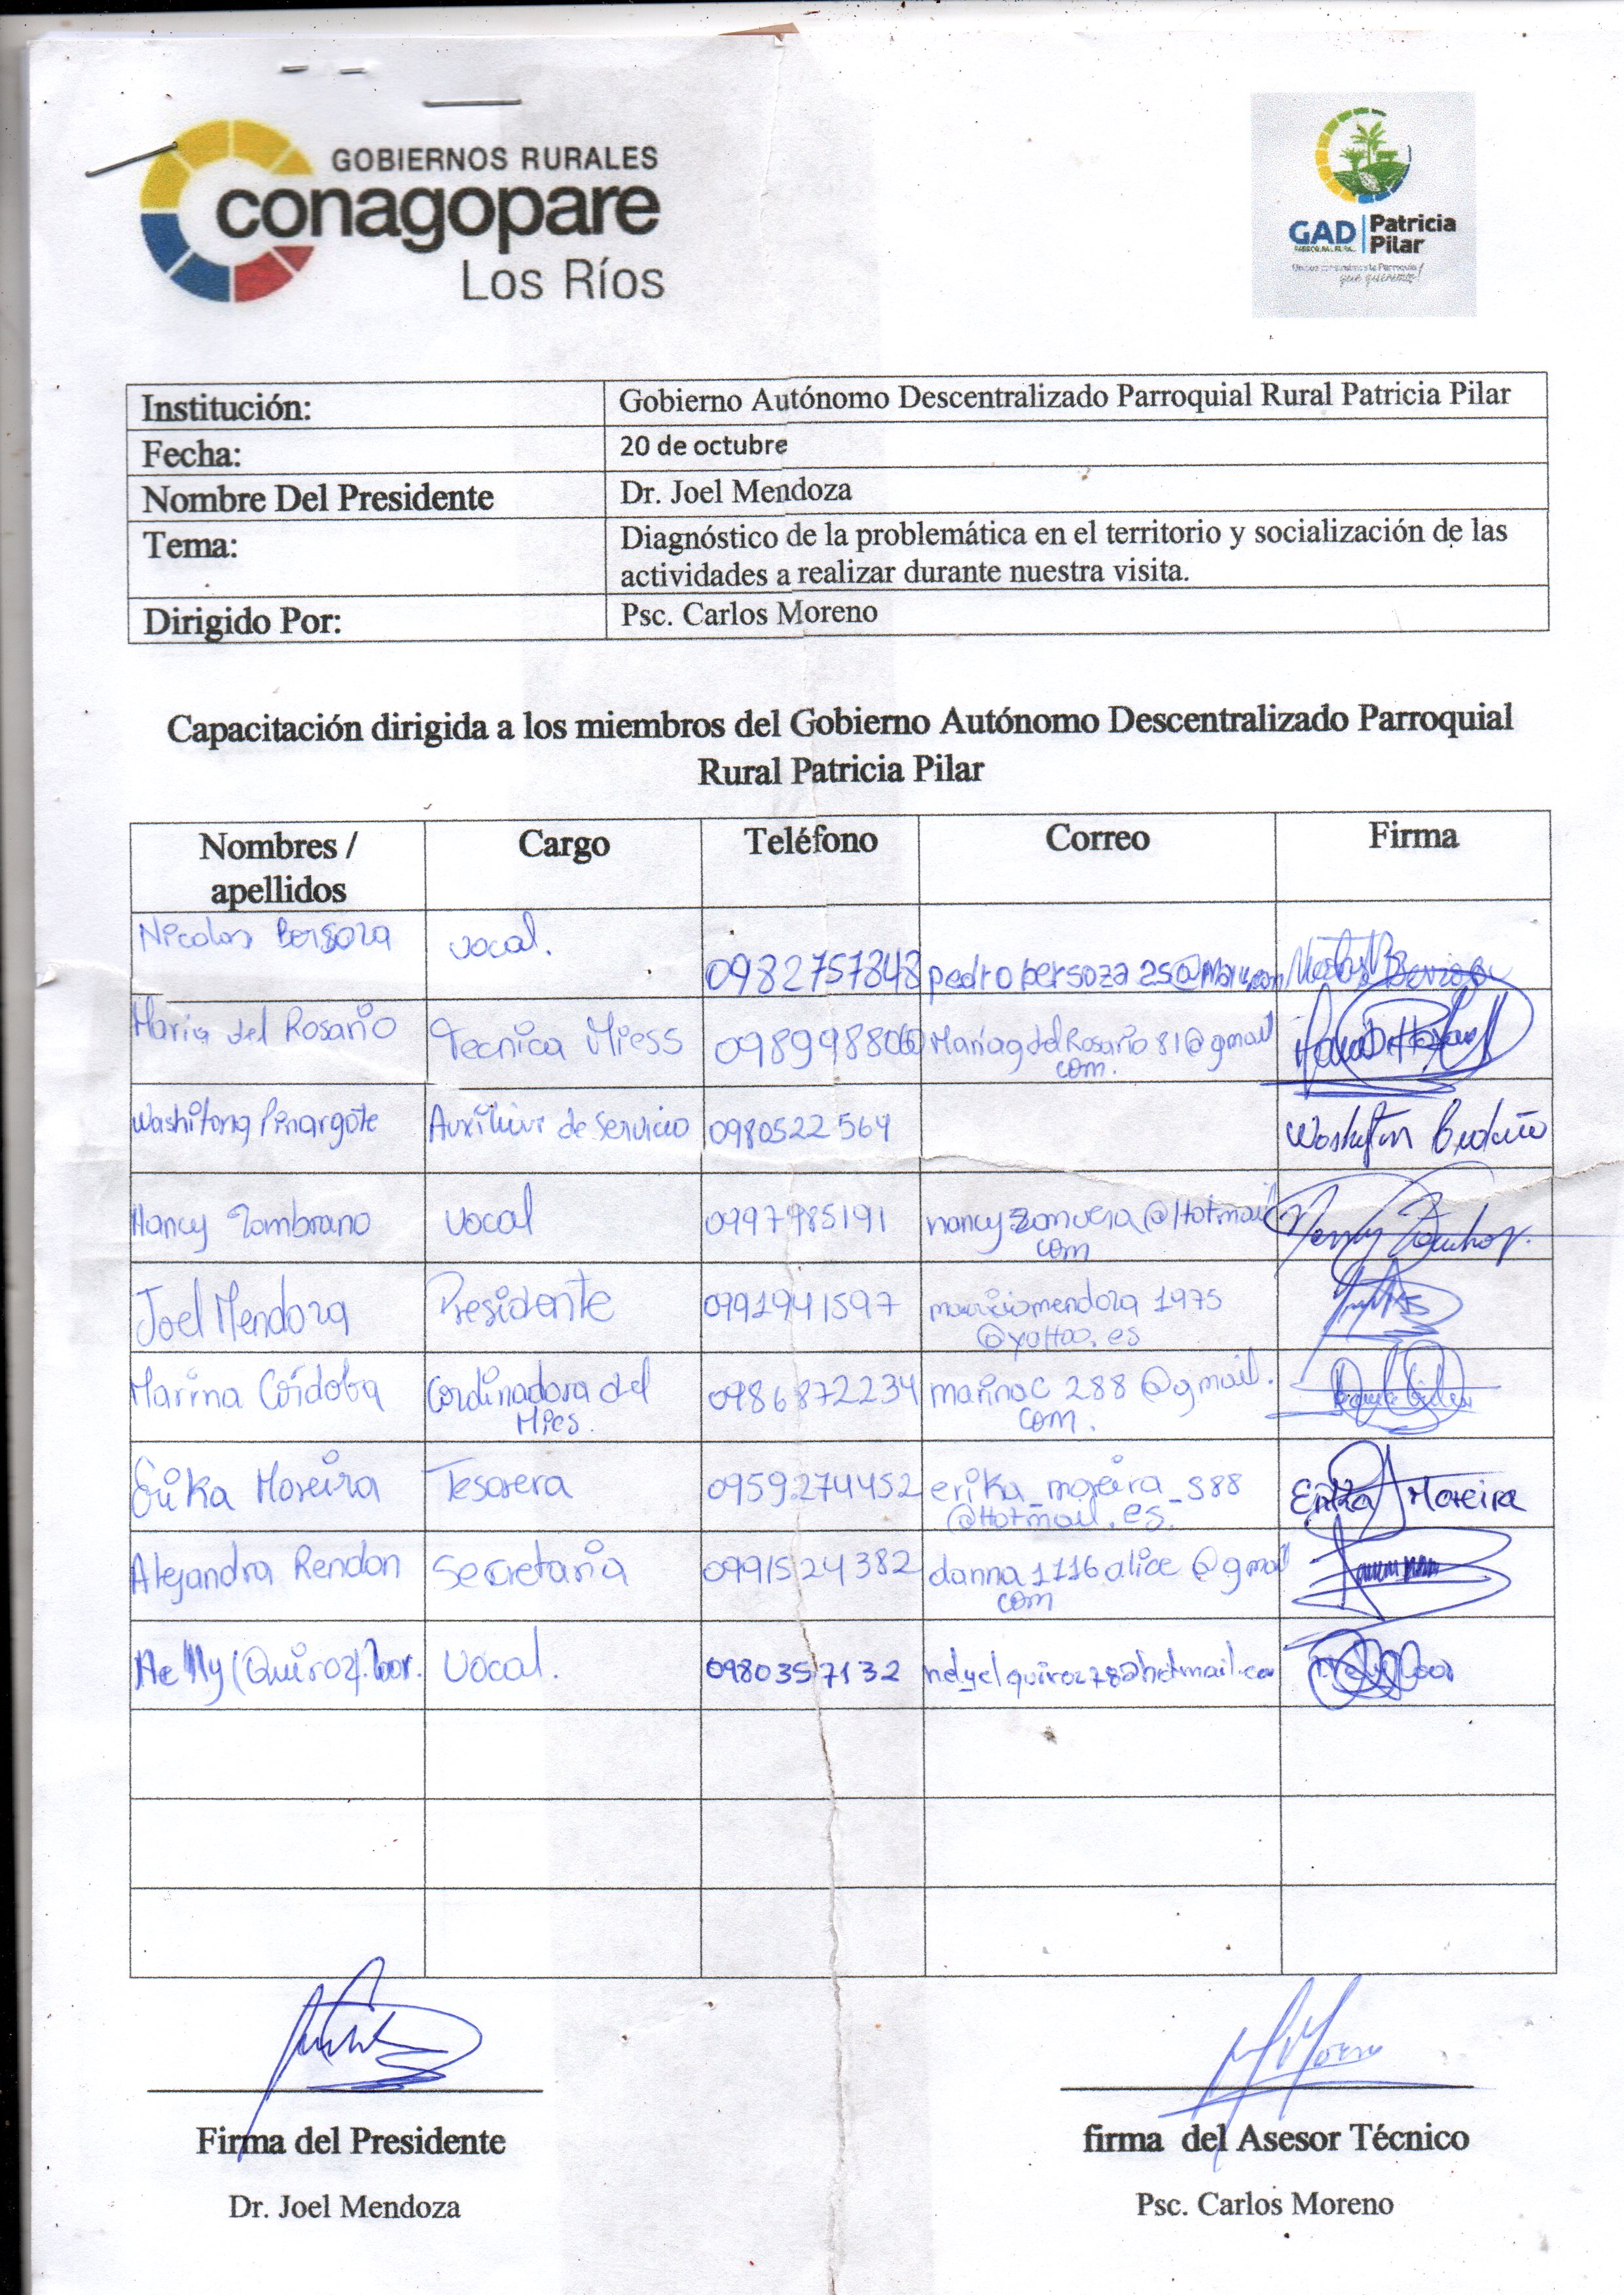 GOBIERNOS RURALES
conagopare
Los Ríos
GAD Patricia
Pilar
Institución: Gobierno Autónomo Descentralizado Parroquial Rural Patricia Pilar
Fecha: 20 de octubre
Nombre Del Presidente Dr. Joel Mendoza
Tema: Diagnóstico de la problemática en el territorio y socialización de las
actividades a realizar durante nuestra visita.
Dirigido Por: Psc. Carlos Moreno
Capacitación dirigida a los miembros del Gobierno Autónomo Descentralizado Parroquial
Rural Patricia Pilar
Nombres / Cargo Teléfono Correo Firma
apellidos
Nicolas Bersoza vocal. 0982757848
Maria del Rosario Tecnica Miess MariagdelRosario81@gmail
com.
Washitong Pinargote Auxiliar de Servicio 0980522564
Nancy Zambrano vocal 0997985191
com
Joel Mendoza Presidente 0991941597 mauriciomendoza 1975
@yaHoo.es
Marina Córdoba Cordinadora del 0986872234 marinac 288 @gmail.
Mies. com.
Erika Moreira Tesorera 0959274452 erika_moreira_S88
@Hotmail.es. Erika Moreira
Alejandra Rendon Secretaria 0991524382 danna1116alice @gmail
com
Nelly (Quiroz) vocal. 0980357132
Firma del Presidente firma del Asesor Técnico
Dr. Joel Mendoza Psc. Carlos Moreno